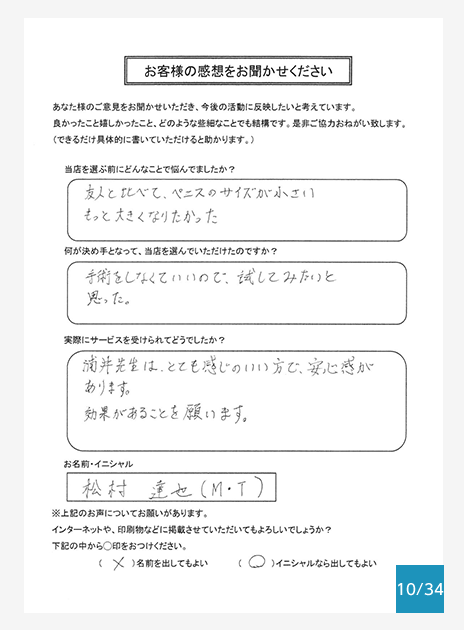 お客様の感想をお聞かせください
あなた様のご意見をお聞かせいただき、今後の活動に反映したいと考えています。
良かったこと嬉しかったこと、どのような些細なことでも結構です。是非ご協力おねがい致します。
(できるだけ具体的に書いていただけると助かります。)
当店を選ぶ前にどんなことで悩んでましたか？
友人と比べて、ペニスのサイズが小さい
もっと大きくなりたかった
何が決め手となって、当店を選んでいただけたのですか？
手術をしなくていいので、試してみたいと
思った。
実際にサービスを受けられてどうでしたか？
浦井先生は、とても感じのいい方で、安心感が
あります。
効果があることを願います。
お名前・イニシャル
松村 達也(M・T)
※上記のお声についてお願いがあります。
インターネットや、印刷物などに掲載させていただいてもよろしいでしょうか？
下記の中から○印をおつけください。
( × )名前を出してもよい ( ○ )イニシャルなら出してもよい
10/34